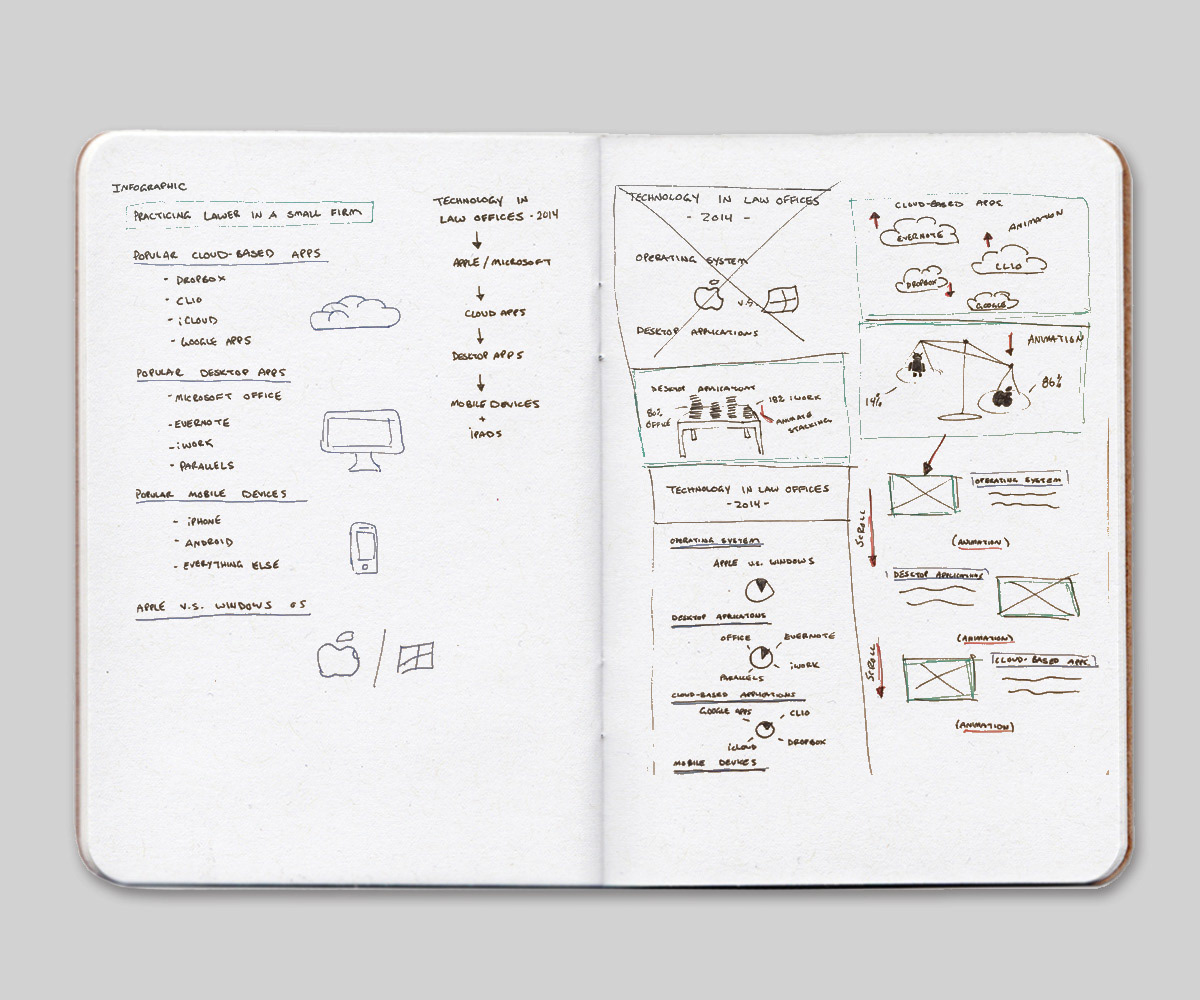 INFOGRAPHIC
PRACTICING LAWER IN A SMALL FIRM
POPULAR CLOUD-BASED APPS
- DROPBOX
- CLIO
- iCLOUD
- GOOGLE APPS
POPULAR DESKTOP APPS
- MICROSOFT OFFICE
- EVERNOTE
- iWORK
- PARALLELS
POPULAR MOBILE DEVICES
- iPHONE
- ANDROID
- EVERYTHING ELSE
APPLE V.S. WINDOWS OS
TECHNOLOGY IN
LAW OFFICES - 2014
APPLE / MICROSOFT
CLOUD APPS
DESKTOP APPS
MOBILE DEVICES
+
iPADS
TECHNOLOGY IN LAW OFFICES
- 2014 -
OPERATING SYSTEM
V.S.
DESKTOP APPLICATIONS
DESKTOP APPLICATIONS
80%
OFFICE
182 iWORK
ANIMATE
STACKING
TECHNOLOGY IN LAW OFFICES
- 2014 -
OPERATING SYSTEM
APPLE V.S. WINDOWS
DESKTOP APPLICATIONS
OFFICE
EVERNOTE
iWORK
PARALLELS
CLOUD-BASED APPLICATIONS
GOOGLE APPS
CLIO
iCLOUD
DROPBOX
MOBILE DEVICES
CLOUD-BASED APPS
ANIMATION
EVERNOTE
CLIO
DROPBOX
GOOGLE
ANIMATION
14%
86%
OPERATING SYSTEM
SCROLL
(ANIMATION)
DESKTOP APPLICATIONS
(ANIMATION)
SCROLL
CLOUD-BASED APPS
(ANIMATION)